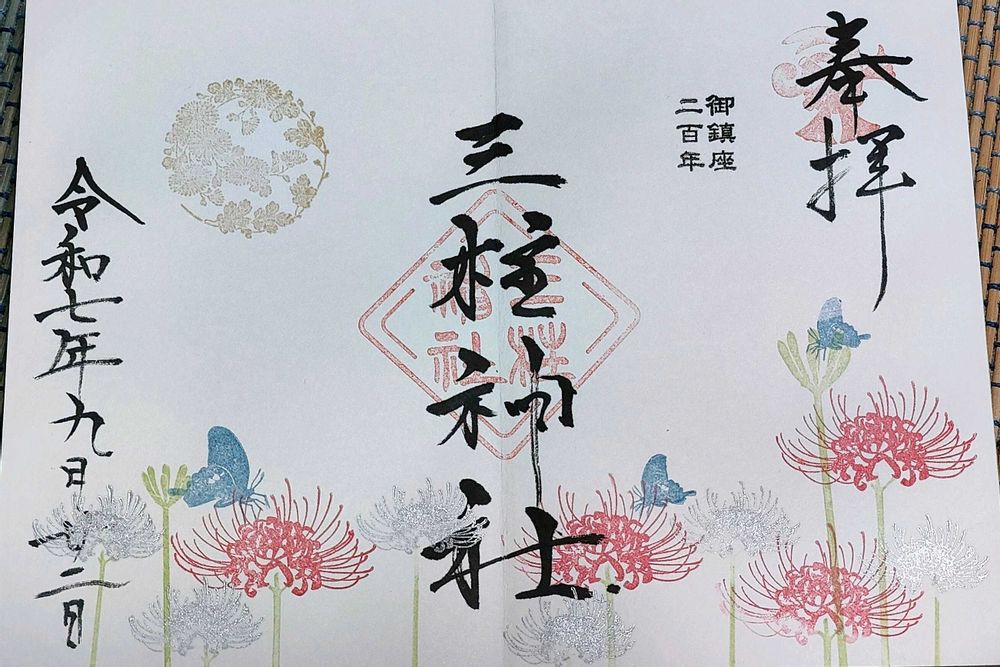 奉拝
御鎮座
二百年
三柱神社
三柱
神社
令和七年九月廿二日